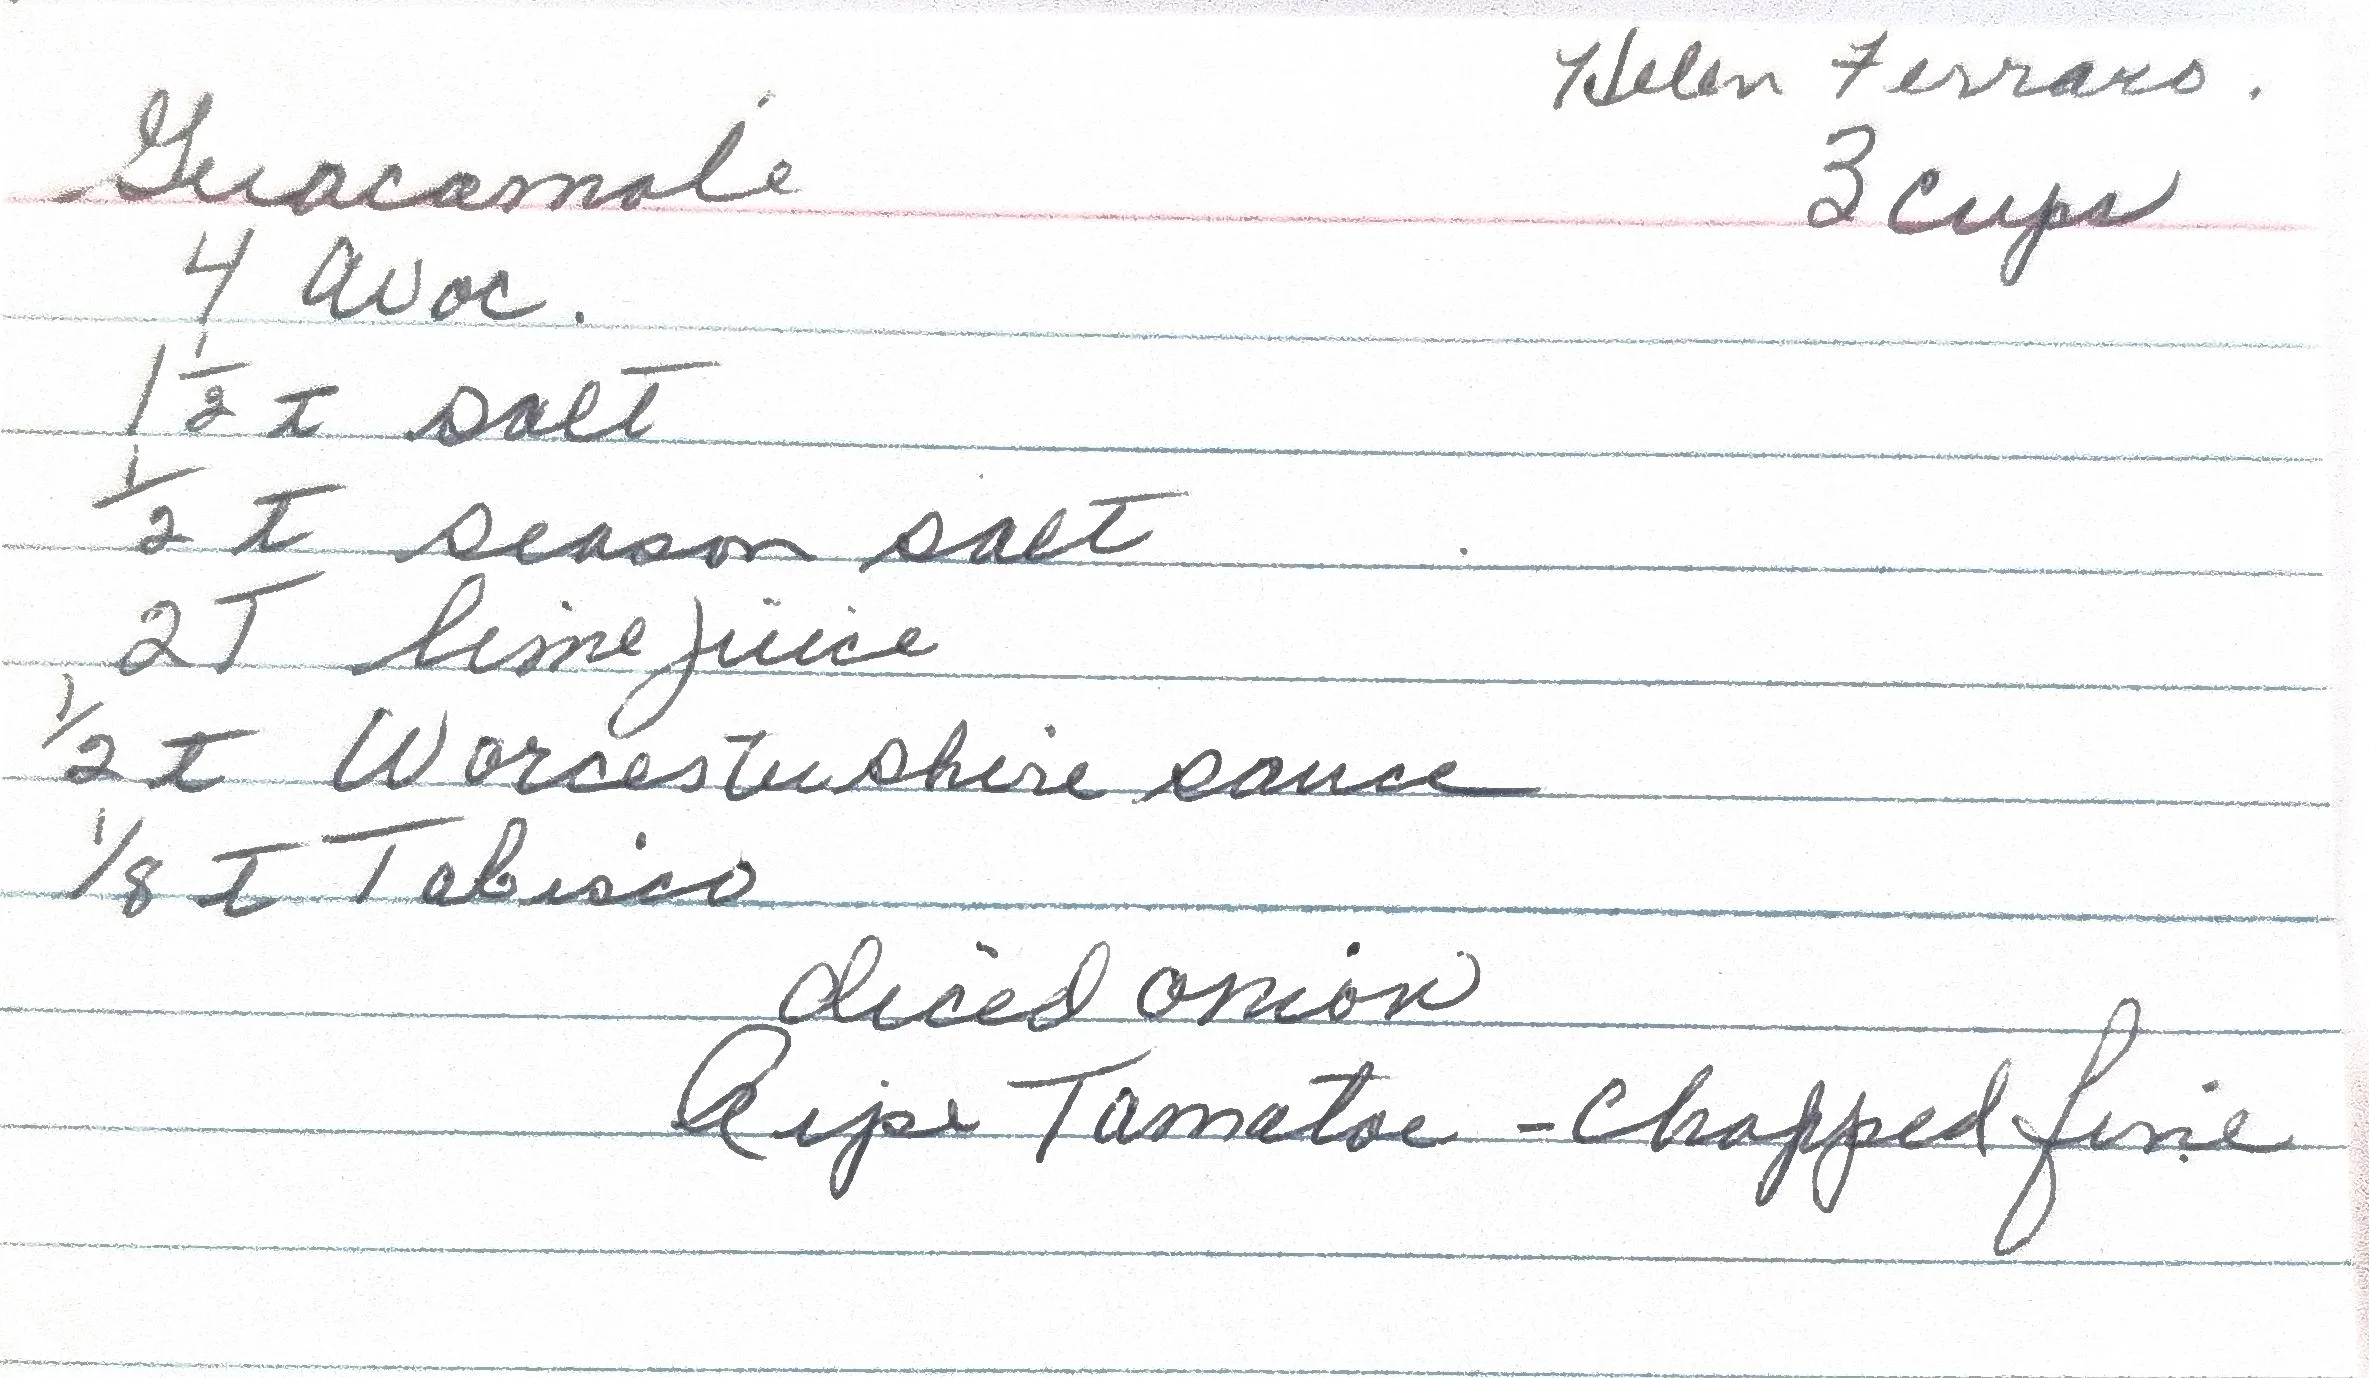 Helen Ferraro.
Guacamole
3 cups
4 Avoc.
1 1/2 t salt
1/2 t season salt
2T lime juice
1/2 t Worcestershire sauce
1/8 t Tabisco
diced onion
Ripe Tamatoe - chopped fine